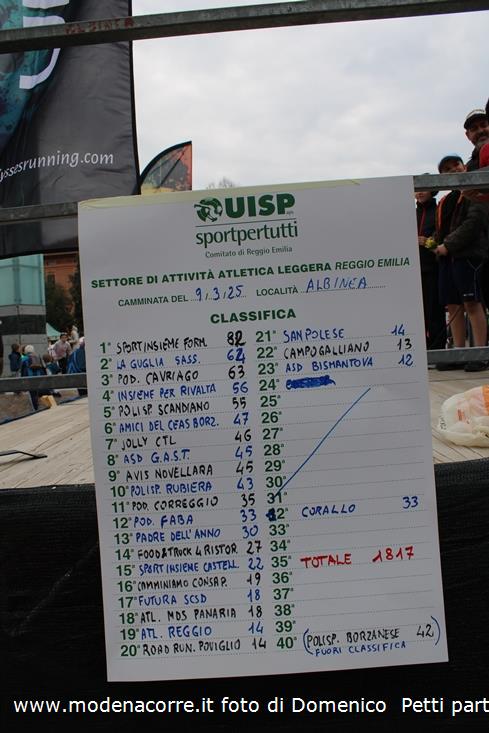 yssesrunning.com
UISP aps
sportpertutti
Comitato di Reggio Emilia
SETTORE DI ATTIVITÀ ATLETICA LEGGERA REGGIO EMILIA
CAMMINATA DEL 9/3/25 LOCALITÀ ALBINEA
CLASSIFICA
1° SPORTINSIEME FORM. 82
2° LA GUGLIA SASS. 64
3° POD. CAVRIAGO 63
4° INSIEME PER RIVALTA 56
5° POLISP. SCANDIANO 55
6° AMICI DEL CEAS BORZ. 47
7° JOLLY CTL 46
8° ASD G.A.S.T. 45
9° AVIS NOVELLARA 45
10° POLISP. RUBIERA 43
11° POD. CORREGGIO 35
12° POD. FABA 33
13° PADRE DELL'ANNO 30
14° FOOD&TRUCK 4 RISTOR. 27
15° SPORT INSIEME CASTELL. 22
16° CAMMINIAMO CONSAP. 19
17° FUTURA SCSD 18
18° ATL. MDS PANARIA 18
19° ATL. REGGIO 14
20° ROAD RUN. POVIGLIO 14
21° SANPOLESE 14
22° CAMPOGALLIANO 13
23° ASD BISMANTOVA 12
24°
25°
26°
27°
28°
29°
30°
31°
32° CORALLO 33
33°
34°
35° TOTALE 1817
36°
37°
38°
39°
40° (POLISP. BORZANESE 42)
(FUORI CLASSIFICA
www.modenacorre.it foto di Domenico Petti part